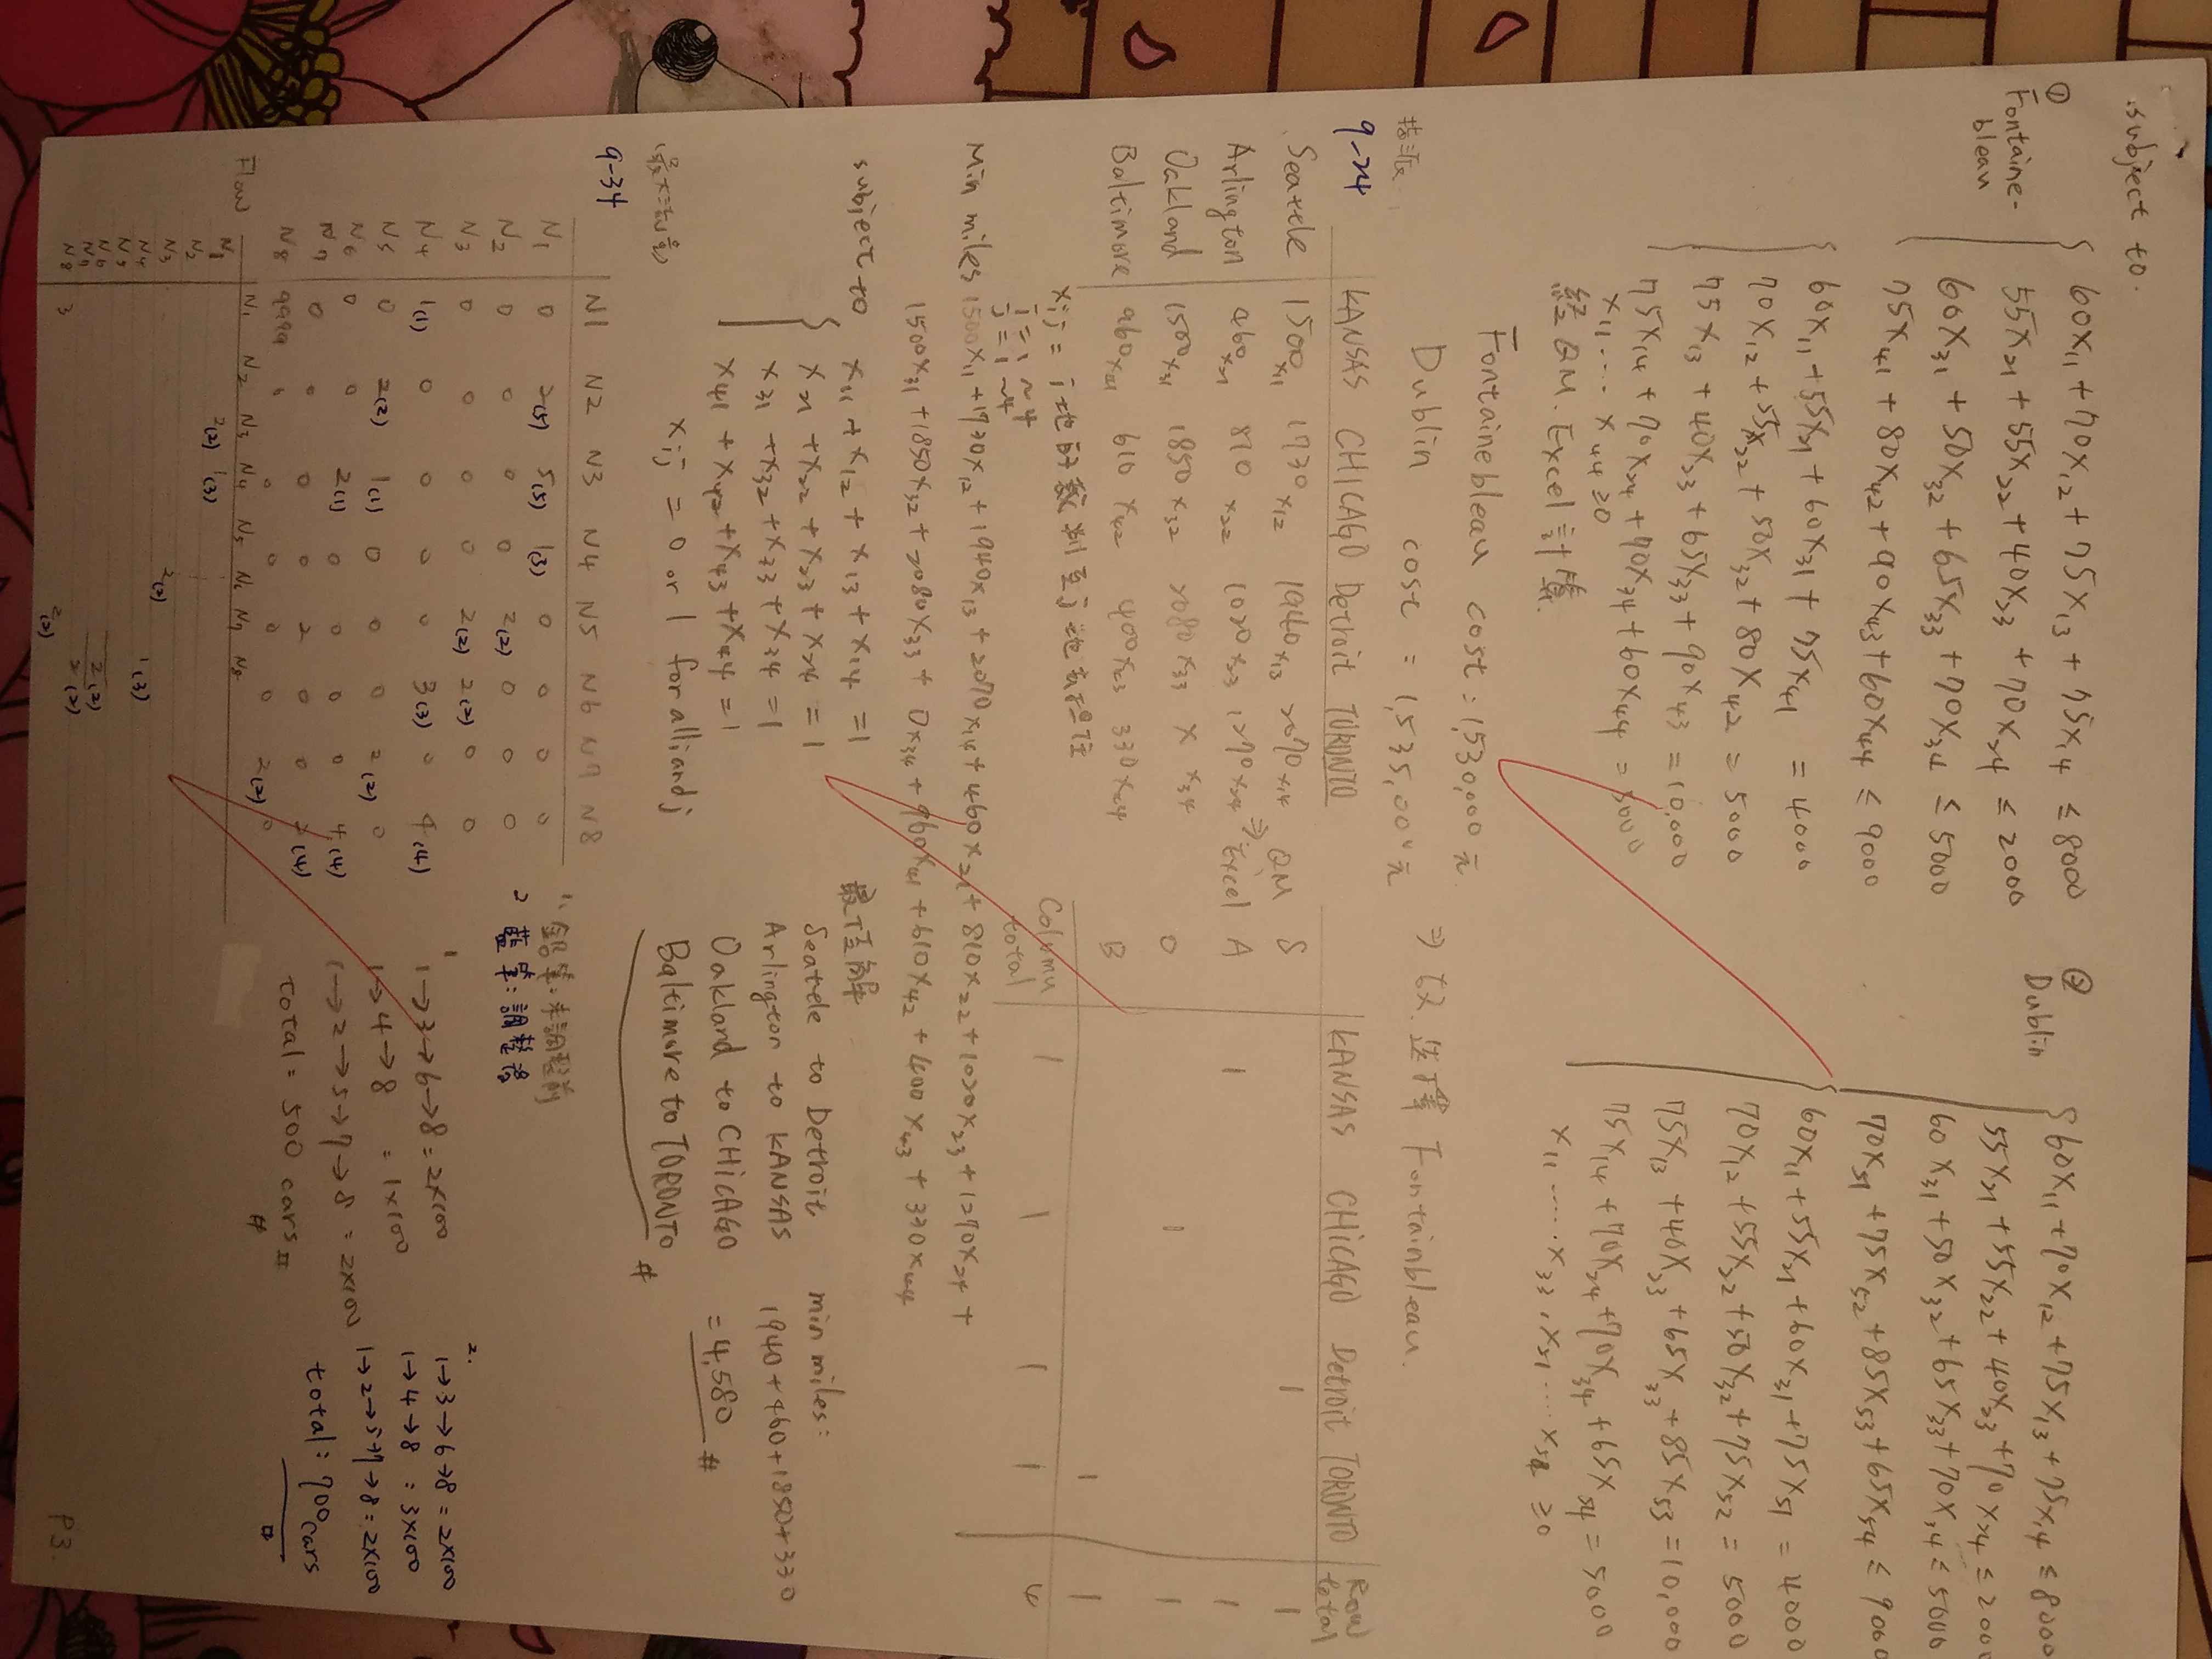 subject to.
① Fontaine-bleau
60x₁₁ + 70x₁₂ + 75x₁₃ + 75x₁₄ ≤ 8000
55x₂₁ + 55x₂₂ + 40x₂₃ + 70x₂₄ ≤ 2000
60x₃₁ + 50x₃₂ + 65x₃₃ + 70x₃₄ ≤ 5000
75x₄₁ + 80x₄₂ + 90x₄₃ + 60x₄₄ ≤ 9000
60x₁₁ + 55x₂₁ + 60x₃₁ + 75x₄₁ = 4000
70x₁₂ + 55x₂₂ + 50x₃₂ + 80x₄₂ = 5000
75x₁₃ + 40x₂₃ + 65x₃₃ + 90x₄₃ = 10,000
75x₁₄ + 70x₂₄ + 70x₃₄ + 60x₄₄ = 5000
x₁₁ .... x₄₄ ≥ 0
② Dublin
60x₁₁ + 70x₁₂ + 75x₁₃ + 75x₁₄ ≤ 8000
55x₂₁ + 55x₂₂ + 40x₂₃ + 70x₂₄ ≤ 2000
60x₃₁ + 50x₃₂ + 65x₃₃ + 70x₃₄ ≤ 5000
70x₅₁ + 75x₅₂ + 85x₅₃ + 65x₅₄ ≤ 9000
60x₁₁ + 55x₂₁ + 60x₃₁ + 75x₅₁ = 4000
70x₁₂ + 55x₂₂ + 50x₃₂ + 75x₅₂ = 5000
75x₁₃ + 40x₂₃ + 65x₃₃ + 85x₅₃ = 10,000
75x₁₄ + 70x₂₄ + 70x₃₄ + 65x₅₄ = 5000
x₁₁ ...... x₃₃, x₅₁ .... x₅₄ ≥ 0
經 QM. Excel 計算.
Fontainebleau cost = 1,530,000 元
Dublin cost = 1,535,000 元
⇒ 故.選擇 Fontainbleau.
指派
9-24
KANSAS CHICAGO Detroit TORONTO
Seattle 1500 x₁₁ 1730 x₁₂ 1940 x₁₃ 2070 x₁₄
Arlington 460 x₂₁ 810 x₂₂ 1020 x₂₃ 1270 x₂₄
Oakland 1500 x₃₁ 1850 x₃₂ 2080 x₃₃ X x₃₄
Baltimore 960 x₄₁ 610 x₄₂ 400 x₄₃ 330 x₄₄
⇒ QM Excel
KANSAS CHICAGO Detroit TORONTO Row total
S 1 1
A 1 1
O 1 1
B 1 1
Column total 1 1 1 1 4
xij = i地的裁判至j地去擔任
i = 1 ~ 4
j = 1 ~ 4
Min miles 1500x₁₁ + 1730x₁₂ + 1940x₁₃ + 2070x₁₄ + 460x₂₁ + 810x₂₂ + 1020x₂₃ + 1270x₂₄ +
1500x₃₁ + 1850x₃₂ + 2080x₃₃ + 0x₃₄ + 960x₄₁ + 610x₄₂ + 400x₄₃ + 330x₄₄
subject to
x₁₁ + x₁₂ + x₁₃ + x₁₄ = 1
x₂₁ + x₂₂ + x₂₃ + x₂₄ = 1
x₃₁ + x₃₂ + x₃₃ + x₃₄ = 1
x₄₁ + x₄₂ + x₄₃ + x₄₄ = 1
xij = 0 or 1 for all i and j
最佳解
Seattle to Detroit
Arlington to KANSAS
Oakland to CHICAGO
Baltimore to TORONTO #
min miles:
1940 + 460 + 1850 + 330
= 4,580 #
(最大流量)
9-34
N1 N2 N3 N4 N5 N6 N7 N8
N1 0 2(5) 5(5) 1(3) 0 0 0 0
N2 0 0 0 0 2(2) 0 0 0
N3 0 0 0 0 2(2) 2(2) 0 0
N4 1(1) 0 0 0 0 3(3) 0 4(4)
N5 0 2(2) 1(1) 0 0 0 2(2) 0
N6 0 0 2(1) 0 0 0 0 4(4)
N7 0 0 0 0 2 0 0 (4)
N8 9999 0 0 0 0 0 2(2) 0
1. 鉛筆:未調整前
2 藍筆:調整後
1
1→3→6→8 = 2×100
1→4→8 = 1×100
1→2→5→7→8 = 2×100
total = 500 cars #
#
2.
1→3→6→8 = 2×100
1→4→8 = 3×100
1→2→5→7→8 = 2×100
total: 700 cars
#
Flow N1 N2 N3 N4 N5 N6 N7 N8
N1 2(2) 1(3)
N2
N3 2(2)
N4 1(3)
N5
N6 2(2)
N7 2(2)
N8 3 2(2)
P3.